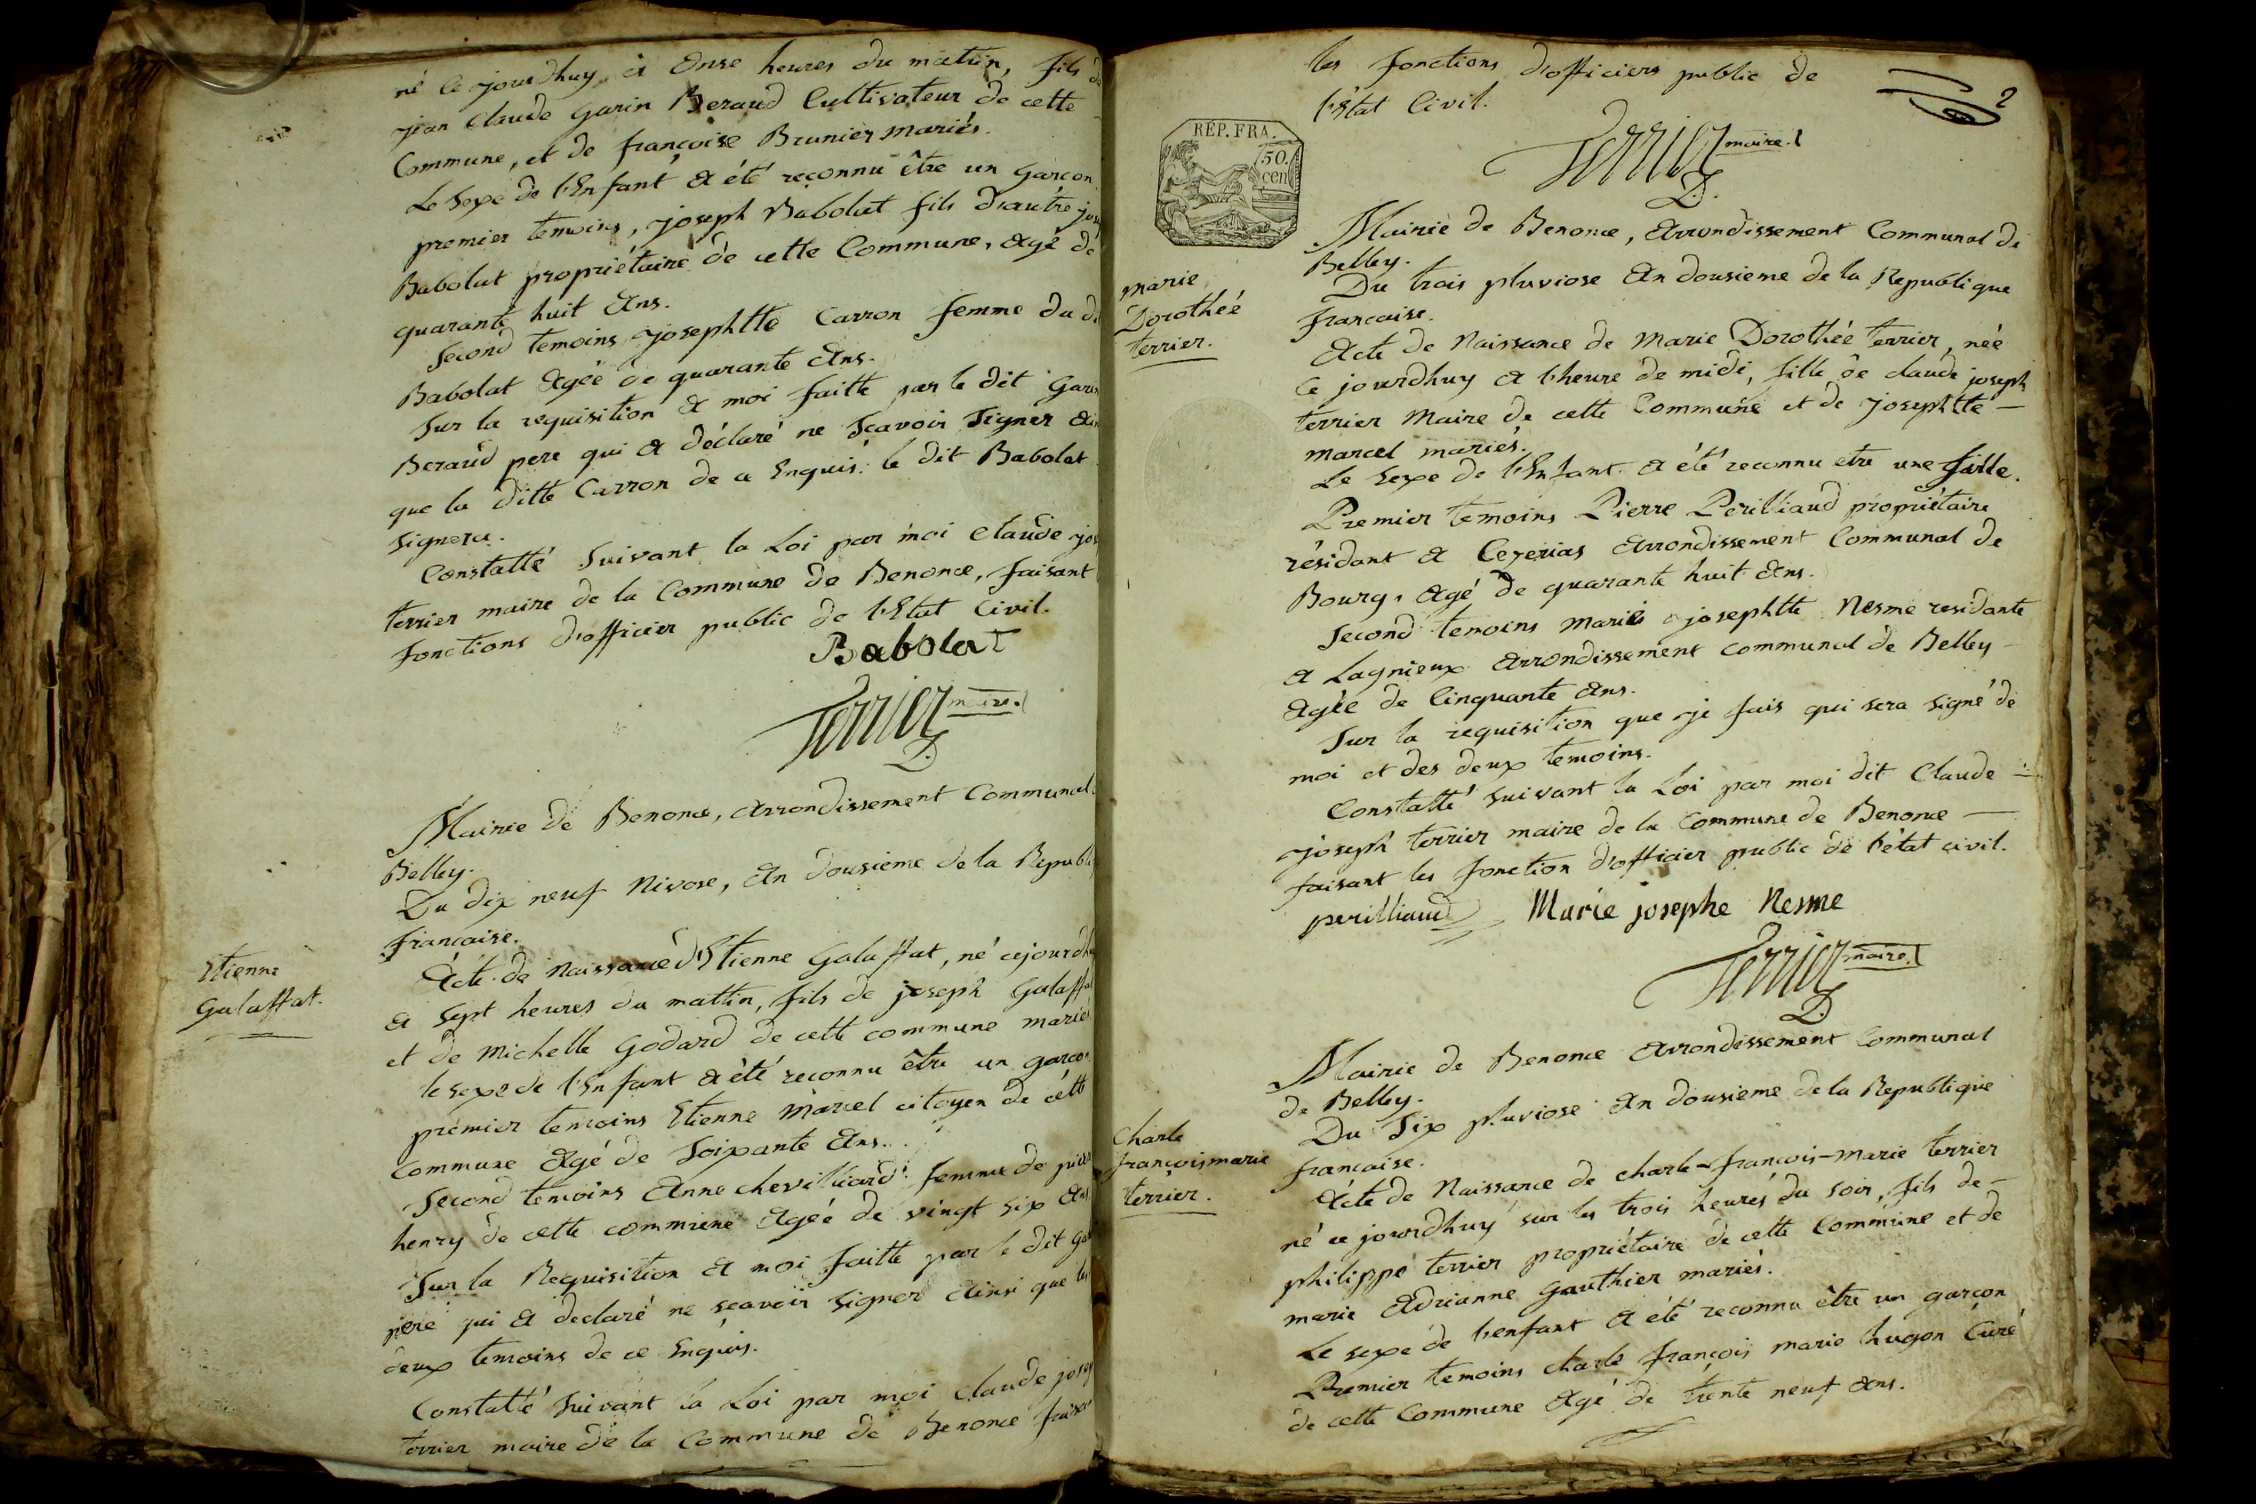 né ce jourdhuy à Onse heures du matin, fils de
jean Claude Garin Beraud Cultivateur de cette
Commune, et de françoise Brunier mariés.
Le Sexe de l'Enfant a été reconnu être un Garçon
premier temoins, joseph Babolat fils d'autre jos
Babolat propriétaire de cette Commune, agé de
quarante huit Ans.
Second temoins josephtte Carron femme du d
Babolat Agée de quarante Ans.
Sur la requisition a moi faitte par le dit Garin
Beraud pere qui a déclaré ne Scavoir Signer ain
que la ditte Carron de ce Enquis: le dit Babolat
Signera.
Constatté Suivant la Loi par moi Claude jos
terrier maire de la Commune de Benonce, faisant
fonctions d'officier public de l'Etat Civil.
Babolat
Terrier maire.
Mairie de Benonce, arrondissement Communal
Belley.
Du dix neuf Nivose, An dousieme de la Republi
française.
Etienne
Galaffat.
Acte de Naissance d'Etienne Galaffat, né cejourdh
a Sept heures du mattin, fils de joseph Galaffat
et de Michelle Godard de cette commune mariés
le sexe de l'Enfant a été reconnu être un garçon
premier temoins Etienne Marcel citoyen de cett
commune Agé de Soixante Ans.
Second temoins Anne chevilliard femme de pierre
henry de cette commune Agée de vingt six Ans
Sur la Requisition a moi faitte par le dit Gal
pere qui a declaré ne scavoir Signer Ainsi que les
deux temoins de ce Enquis.
Constatté Suivant la Loi par moi Claude josep
terrier maire de la Commune de Benonce faisant
2
les fonctions d'officiers public de
l'Etat Civil.
Terrier maire.
REP. FRA.
50.
cen
Mairie de Benonce, Arrondissement Communal de
Belley.
Du trois pluviose An dousieme de la Republique
française.
marie
Dorothée
terrier.
Acte de Naissance de Marie Dorothée terrier, née
ce jourdhuy a l'heure de midi, fille de claude joseph
terrier Maire de cette Commune et de Josephtte
marcel mariés.
Le Sexe de l'Enfant a été reconnu etre une fille.
Premier temoins Pierre Perilliaud propriétaire
résidant a Ceyerias Arrondissement Communal de
Bourg, Agé de quarante huit Ans.
Second temoins Marie josephtte Nesme residante
a Lagnieux Arrondissement communal de Belley
Agée de Cinquante Ans.
Sur la requisition que je fais qui sera Signé de
moi et des deux temoins.
Constatté Suivant la Loi par moi dit Claude
joseph terrier maire de la Commune de Benonce
faisant les fonction d'officier public de l'état civil.
perilliaud Marie josephe Nesme
Terrier maire.
Mairie de Benonce Arrondissement Communal
de Belley.
Du Six pluviose An dousieme de la Republique
française.
Charle
françois marie
terrier.
Acte de Naissance de charle-françois-marie terrier
né ce jourdhuy sur les trois heures du soir, fils de
philippe terrier propriétaire de cette Commune et de
marie Adrianne Gauthier mariés.
Le sexe de l'enfant a été reconnu être un garçon
Premier temoins charle françois marie hugon Curé
de cette Commune Agé de trente neuf Ans.